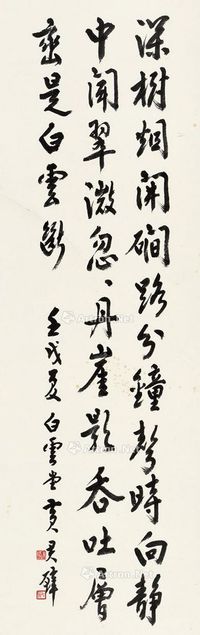 深樹烟開磵路分鐘聲時向靜
中聞翠微忽丶丹崖影吞吐層
巒是白雲斷
壬戌夏白雲堂黃君璧